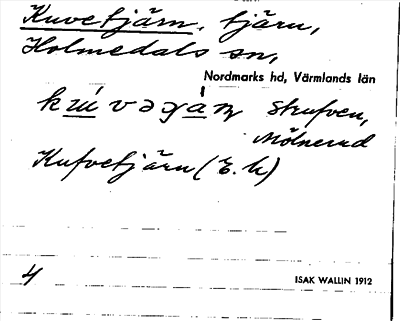 Kuvetjärn, tjärn,
Holmedals sn,
Nordmarks hd, Värmlands län
Strufven,
Mölnerud
Kufvetjärn (E. k)
4 ISAK WALLIN 1912